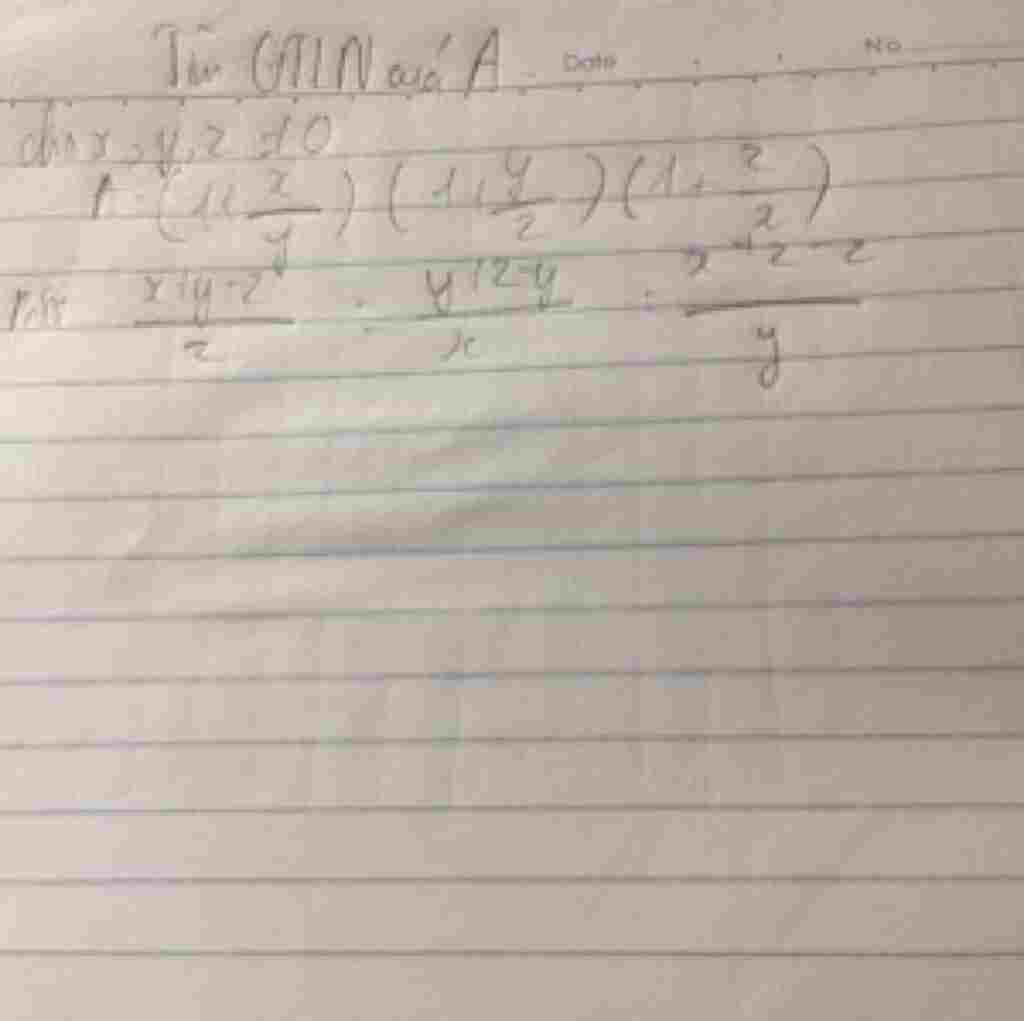 Tìm GTLN của A
Date No
cho x, y, z ≠ 0
A = (1 + x/y) (1 + y/z) (1 + z/x)
biết x+y-z/z = y+z-y/x = x+z-z/y